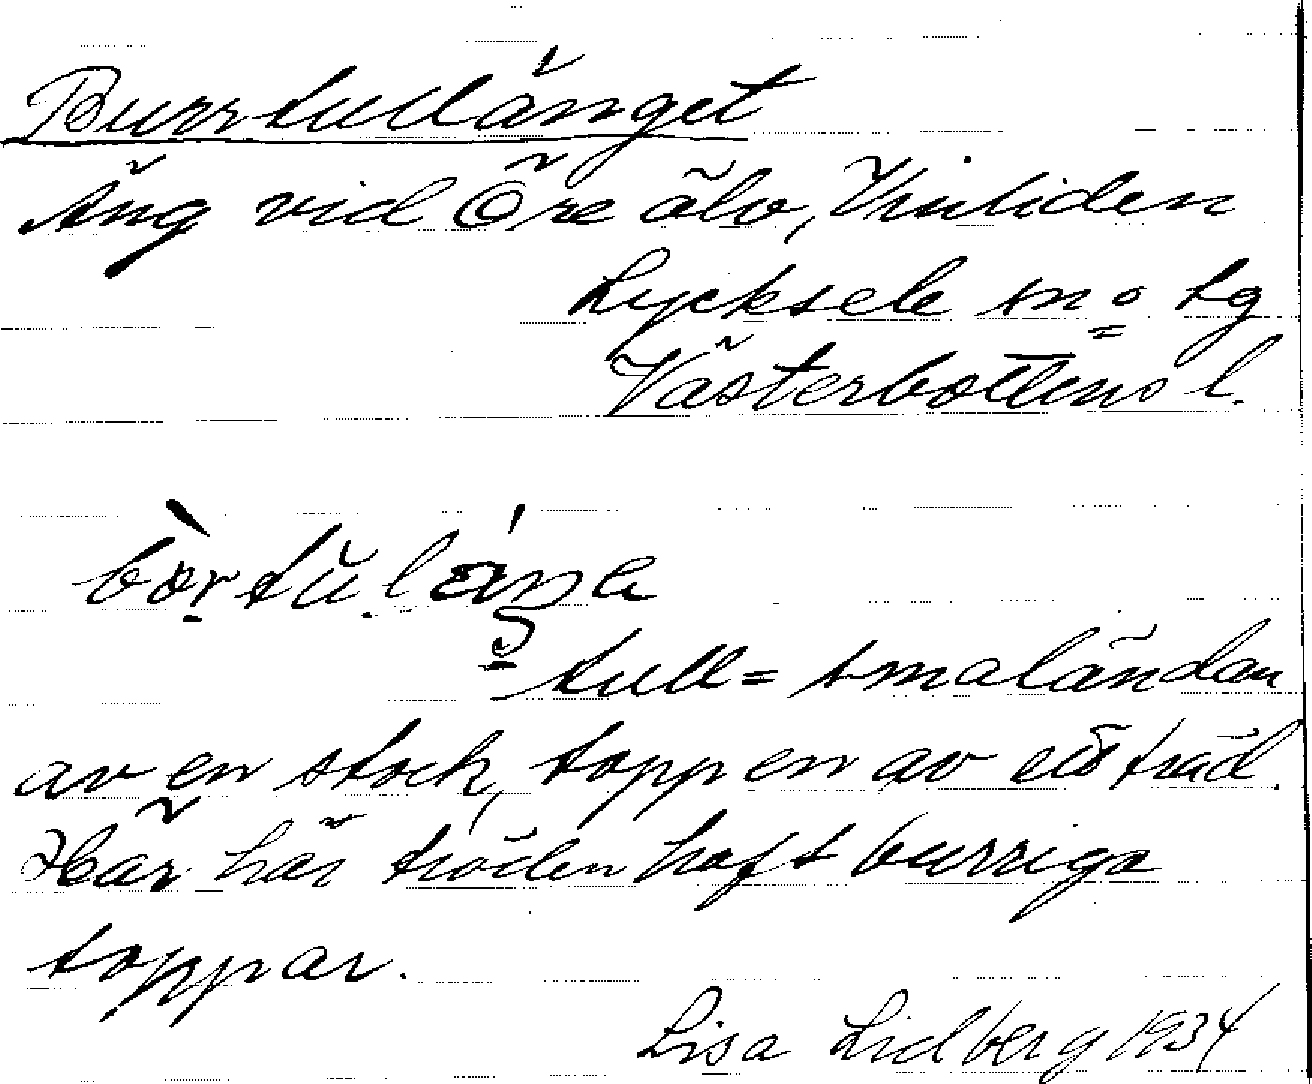 Burrtullänget
Äng vid Öre älv, Vinliden
Lycksele sn o tg
Västerbottens l.
tull = smaländan
av en stock, toppen av ett träd.
Här har träden haft burriga
toppar.
Lisa Lidberg 1934